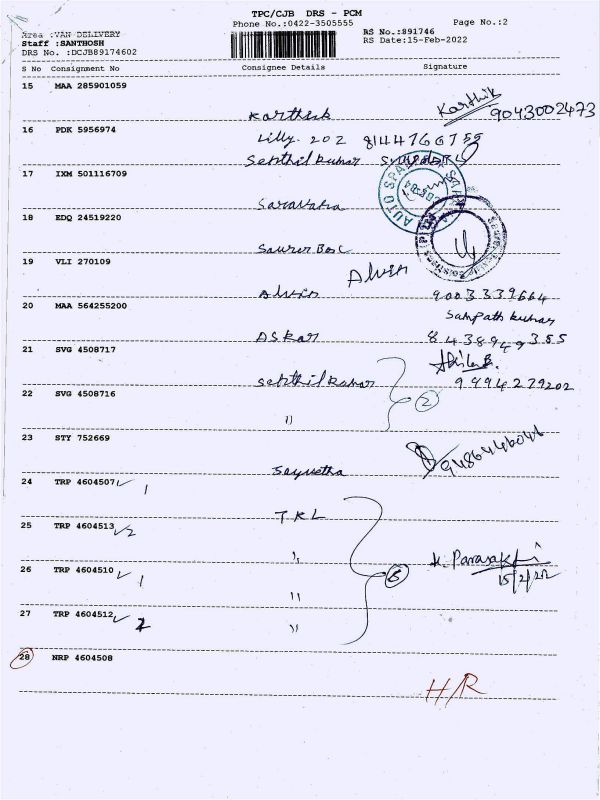 TPC/CJB DRS - PCM
Phone No.:0422-3505555
Page No.:2
Area :VAN DELIVERY
Staff :SANTHOSH
DRS No. :DCJB89174602
RS No.:891746
RS Date:15-Feb-2022
S No Consignment No Consignee Details Signature
15 MAA 285901059
Karthik Karthik 9043002473
16 PDK 5956974
Lilly. 202 8144766755
Senthil kumar
17 IXM 501116709
AUTO SPA
Saravana
18 EDQ 24519220
19 VLI 270109
Alvin
Alvin 9003339664
20 MAA 564255200
Sampath kumar
Askar 8438949355
21 SVG 4508717
Senthil kumar 9994279202
22 SVG 4508716
" 2
23 STY 752669
9486446046
24 TRP 4604507 ✓ 1
TKL
25 TRP 4604513 ✓ 2
"
26 TRP 4604510 ✓ 1
15/2/22
"
27 TRP 4604512 ✓ 2
"
28 NRP 4604508
H/R